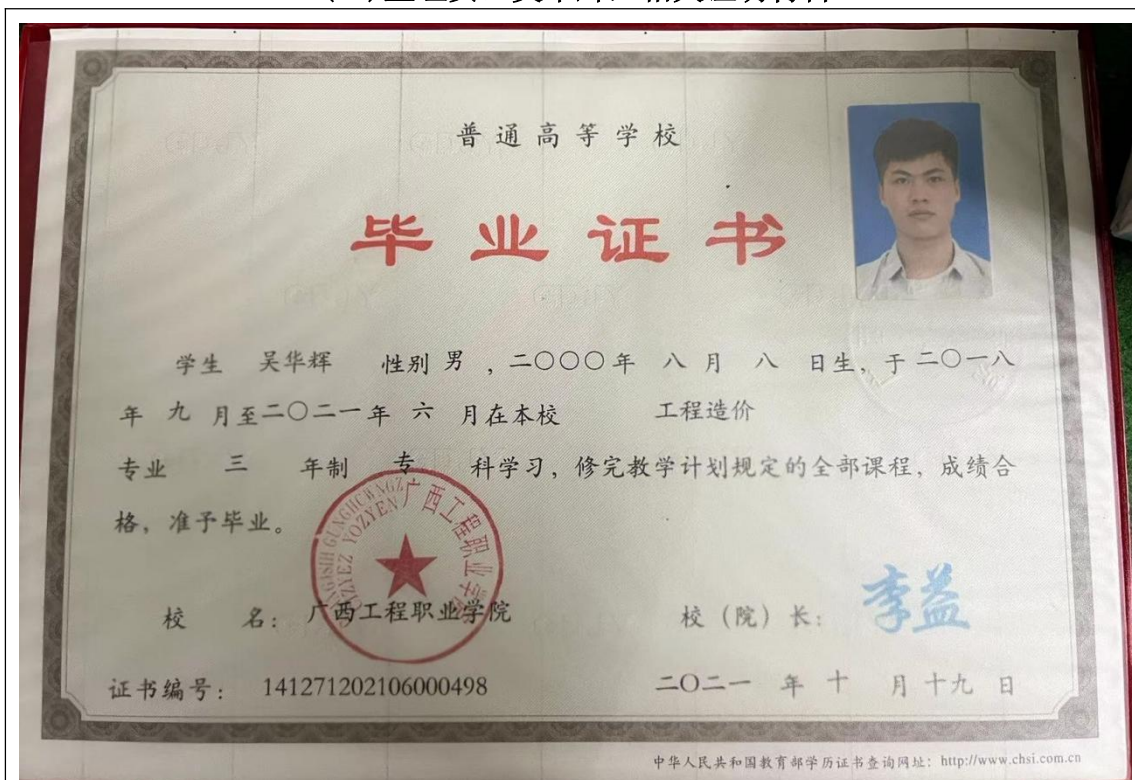 普通高等学校
毕业证书
学生 吴华辉 性别 男 ，二〇〇〇年 八 月 八 日生，于二〇一八
年 九 月至二〇二一年 六 月在本校 工程造价
专业 三 年制 专 科学习，修完教学计划规定的全部课程，成绩合
格，准予毕业。
广西工程职业学院
校 名：广西工程职业学院 校（院）长：李益
证书编号：141271202106000498 二〇二一 年 十 月 十九 日
中华人民共和国教育部学历证书查询网址：http://www.chsi.com.cn